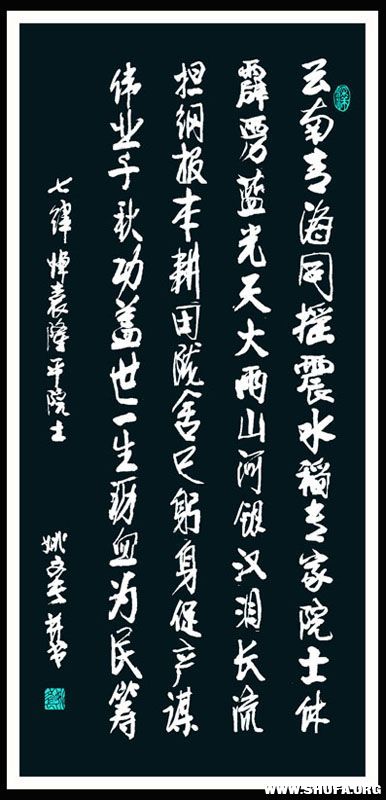 云南青海同摇震水稻专家院士休
霹雳蓝光天大雨山河银汉泪长流
担纲报本耕田陇舍己躬身促产谋
伟业千秋功盖世一生沥血为民筹
七律悼袁隆平院士
姚文
WWW.SHUFA.ORG